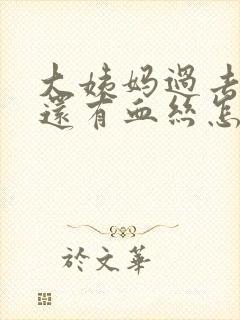 大姨妈過去
還有血丝怎
於文華